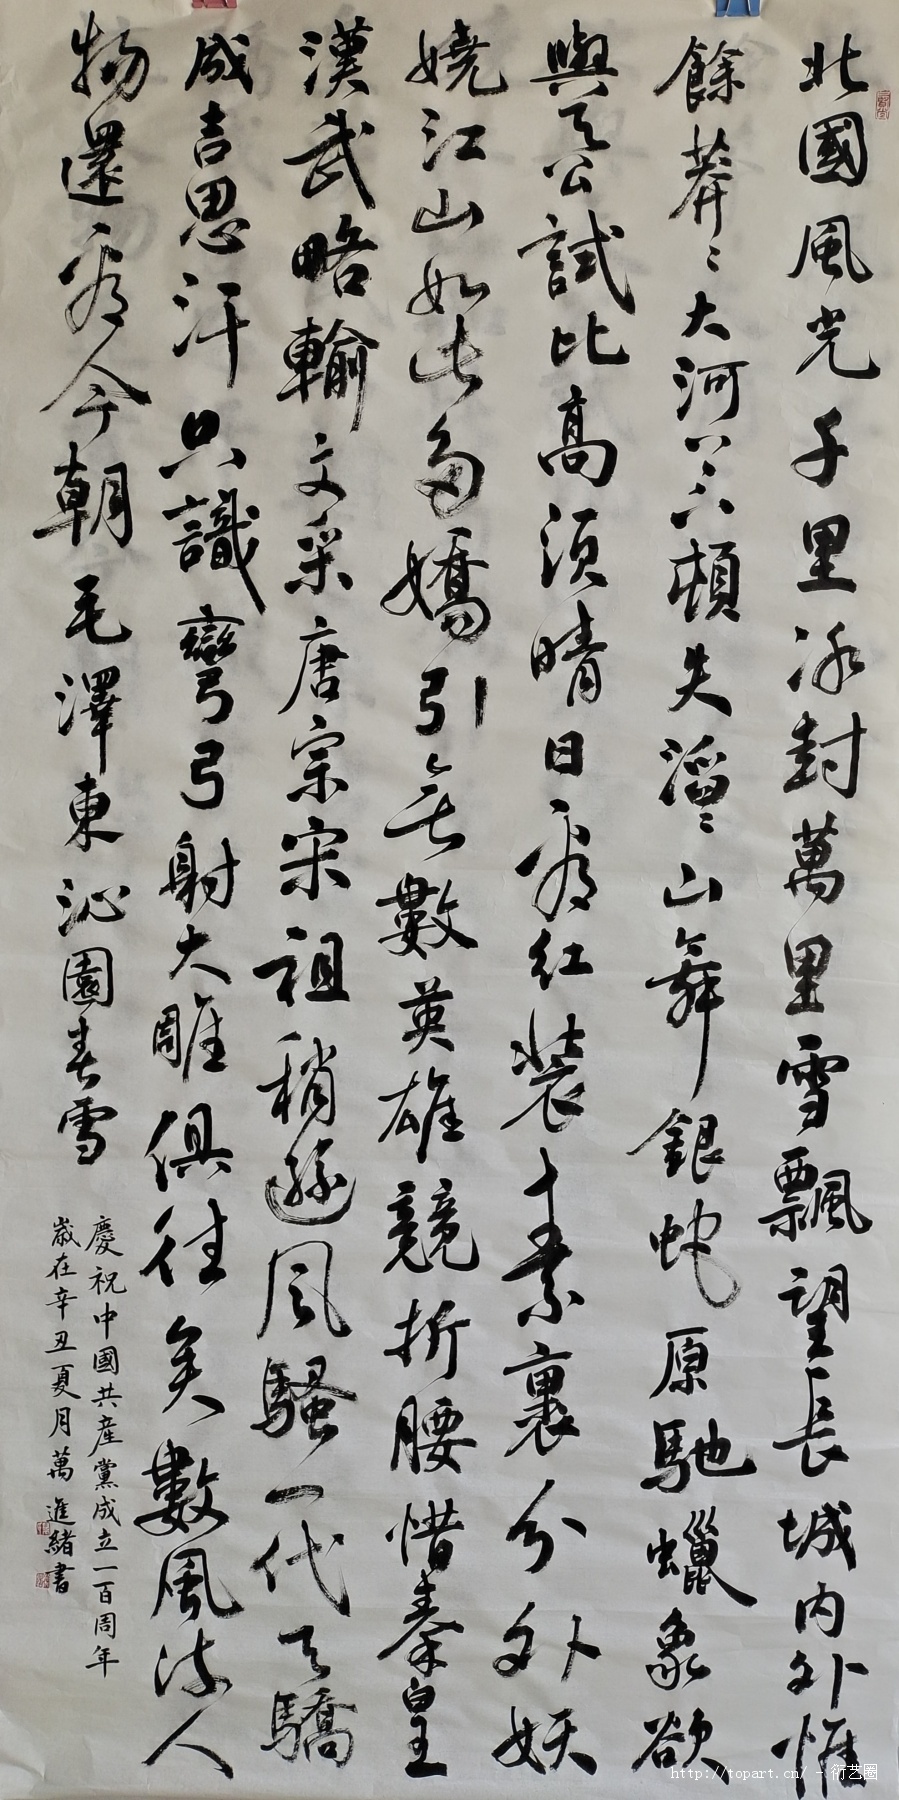 北國風光千里冰封萬里雪飄望長城內外惟
餘莽〻大河上下頓失滔〻山舞銀蛇原馳蠟象欲
與天公試比高須晴日看紅裝素裹分外妖
嬈江山如此多嬌引無數英雄競折腰惜秦皇
漢武略輸文采唐宗宋祖稍遜風騷一代天驕
成吉思汗只識彎弓射大雕俱往矣數風流人
物還看今朝毛澤東沁園春雪
慶祝中國共產黨成立一百周年
歲在辛丑夏月萬進緒書
http://topart.cn/ - 衍艺圈